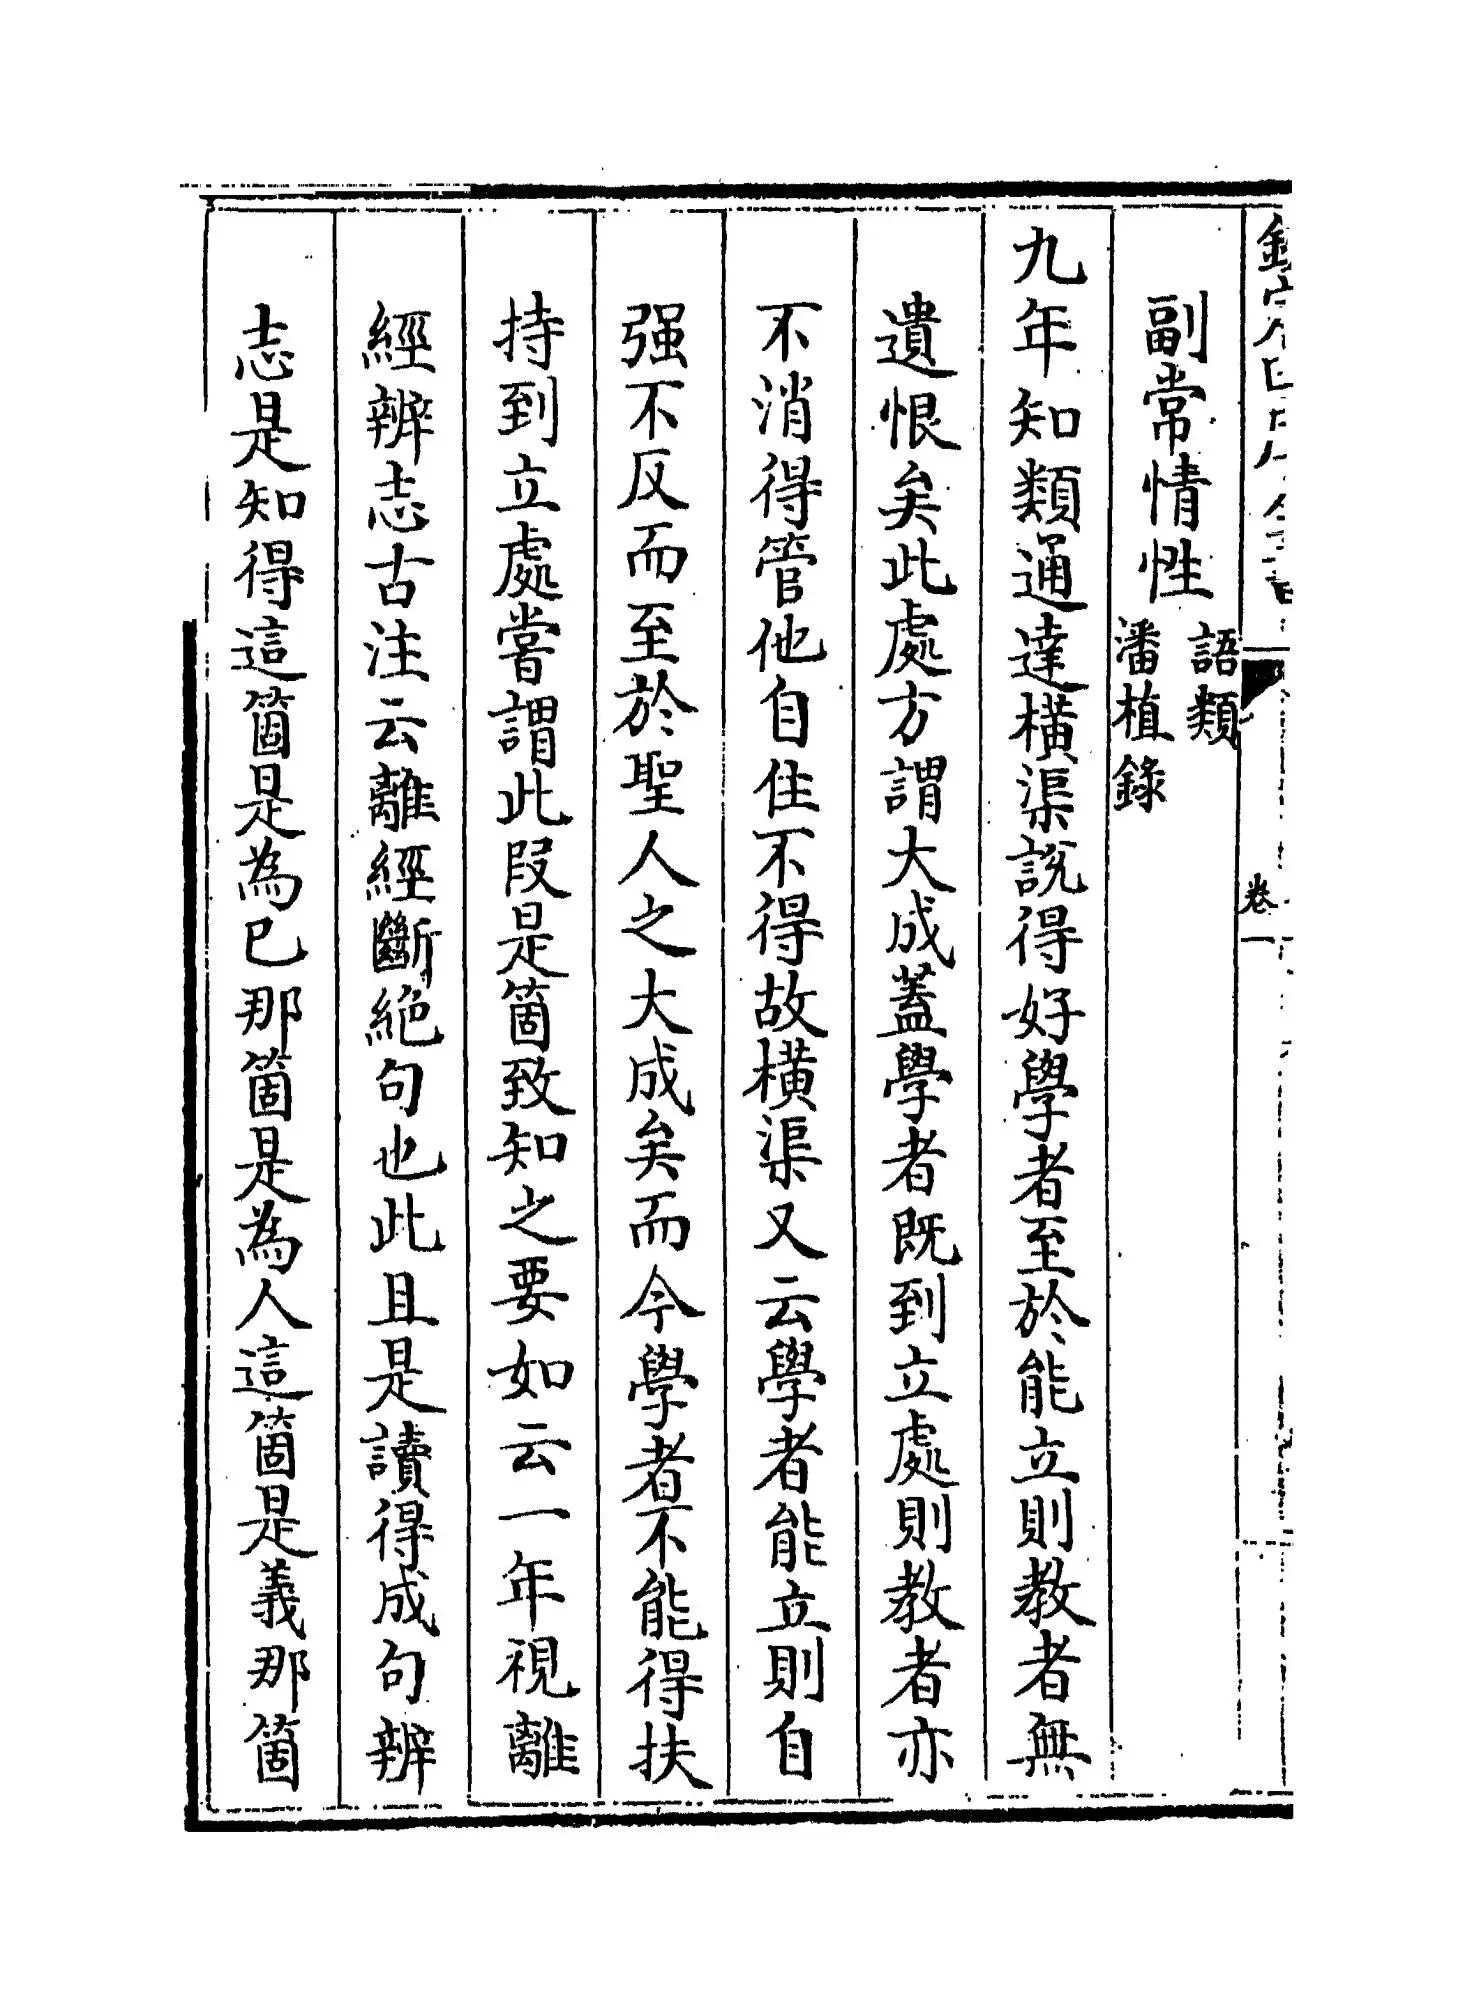 副常情性語類潘植錄
九年知類通達橫渠説得好學者至於能立則教者無
遺恨矣此處方謂大成蓋學者既到立處則教者亦
不消得管他自住不得故橫渠又云學者能立則自
强不反而至於聖人之大成矣而今學者不能得扶
持到立處嘗謂此段是箇致知之要如云一年視離
經辨志古注云離經斷絶句也此且是讀得成句辨
志是知得這箇是為已那箇是為人這箇是義那箇
卷一